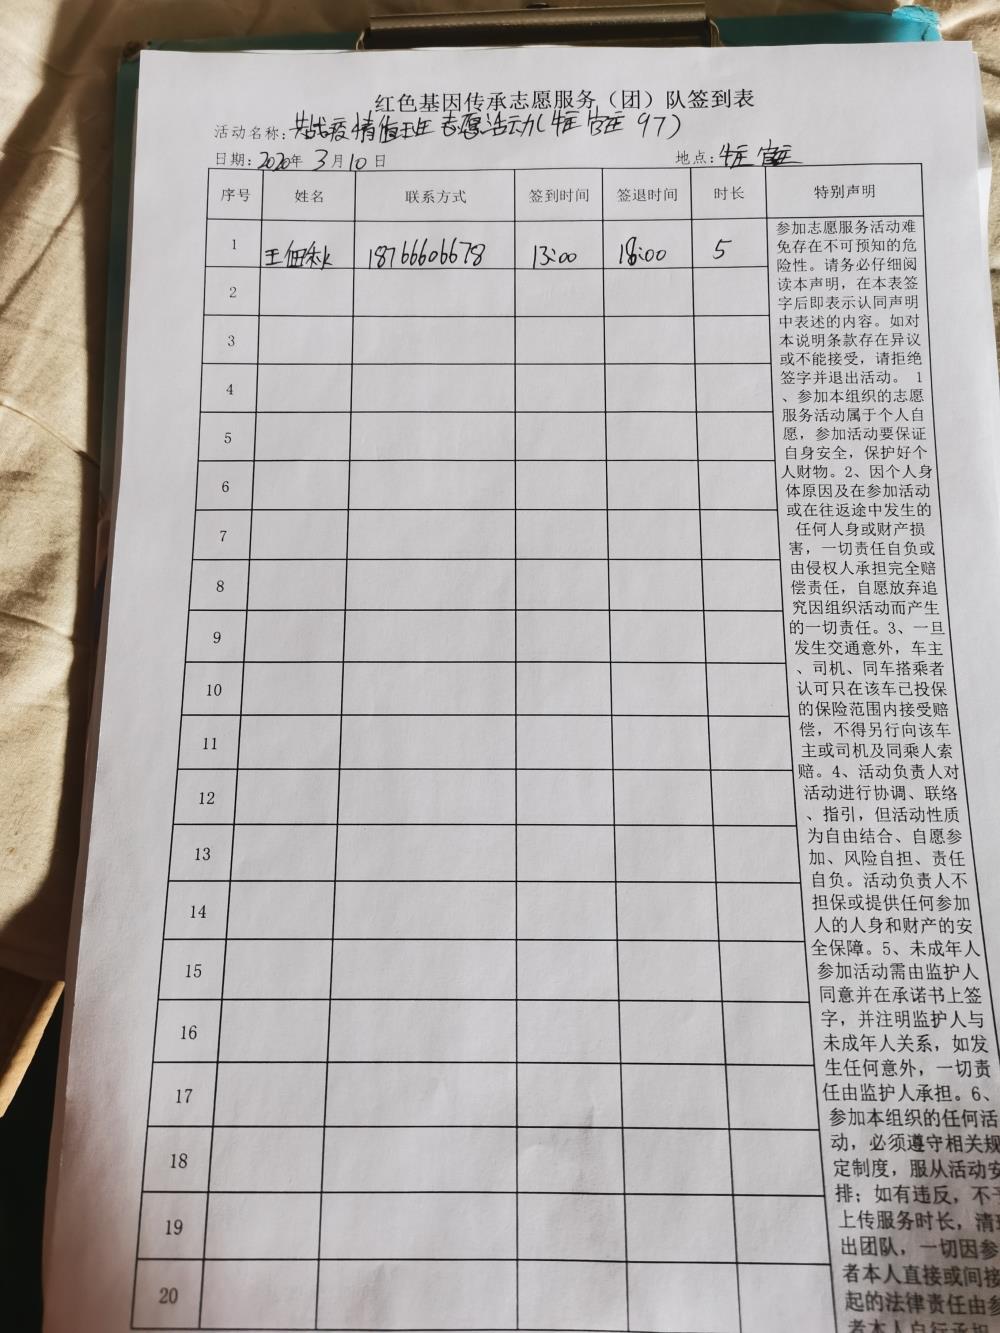 红色基因传承志愿服务（团）队签到表
活动名称：共战疫情值班志愿活动(牛主官庄 97)
日期：2020年 3月10日 地点：官庄
序号 姓名 联系方式 签到时间 签退时间 时长 特别声明
1 王佃秋 18766606678 13:00 18:00 5
2
3
4
5
6
7
8
9
10
11
12
13
14
15
16
17
18
19
20
参加志愿服务活动难
免存在不可预知的危
险性。请务必仔细阅
读本声明，在本表签
字后即表示认同声明
中表述的内容。如对
本说明条款存在异议
或不能接受，请拒绝
签字并退出活动。 1
、参加本组织的志愿
服务活动属于个人自
愿，参加活动要保证
自身安全，保护好个
人财物。2、因个人身
体原因及在参加活动
或在往返途中发生的
任何人身或财产损
害，一切责任自负或
由侵权人承担完全赔
偿责任，自愿放弃追
究因组织活动而产生
的一切责任。3、一旦
发生交通意外，车主
、司机、同车搭乘者
认可只在该车已投保
的保险范围内接受赔
偿，不得另行向该车
主或司机及同乘人索
赔。4、活动负责人对
活动进行协调、联络
、指引，但活动性质
为自由结合、自愿参
加、风险自担、责任
自负。活动负责人不
担保或提供任何参加
人的人身和财产的安
全保障。5、未成年人
参加活动需由监护人
同意并在承诺书上签
字，并注明监护人与
未成年人关系，如发
生任何意外，一切责
任由监护人承担。6、
参加本组织的任何活
动，必须遵守相关规
定制度，服从活动安
排；如有违反，不予
上传服务时长，清
出团队，一切因参
者本人直接或间接
起的法律责任由参
者本人自行承担